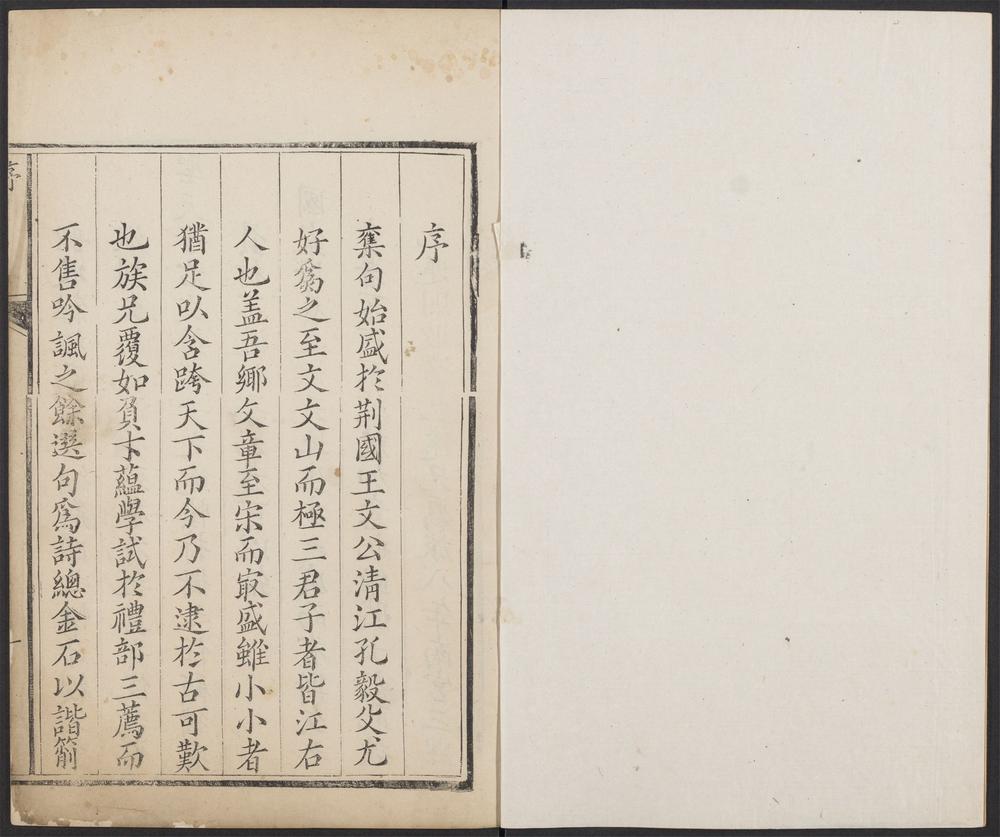 序
集句始盛於荆國王文公淸江孔毅父尤
好爲之至文文山而極三君子者皆江右
人也盖吾鄉文章至宋而㝡盛雖小小者
猶足以含跨天下而今乃不逮於古可歎
也族兄覆如負卞藴學試於禮部三薦而
不售吟諷之餘選句爲詩總金石以諧箾
序